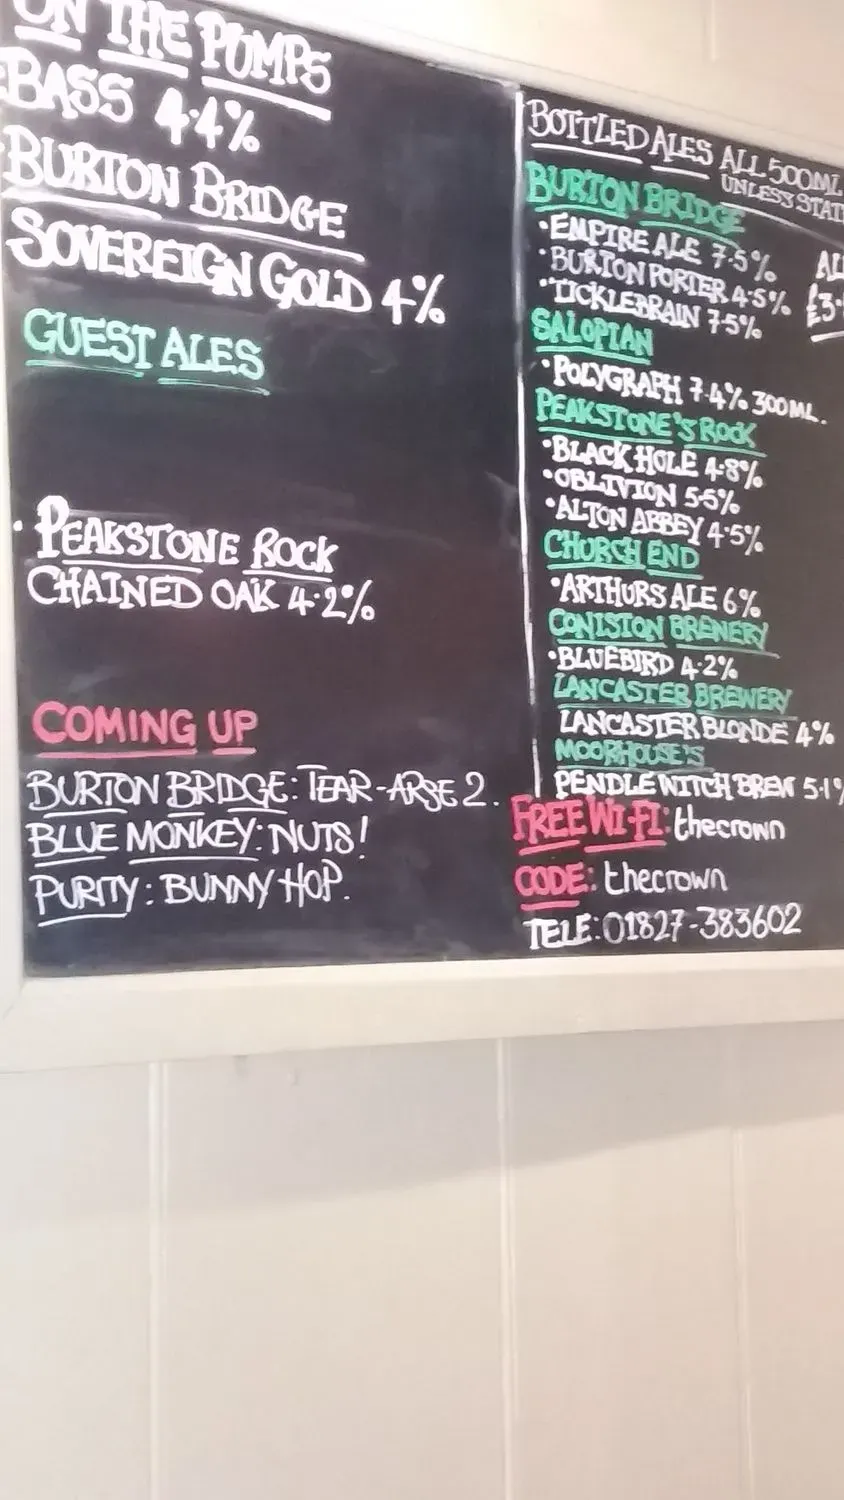 ON THE PUMPS
BASS 4.4%
BURTON BRIDGE
SOVEREIGN GOLD 4%
GUEST ALES
• PEAKSTONE ROCK
CHAINED OAK 4.2%
COMING UP
BURTON BRIDGE: TEAR-ARSE 2.
BLUE MONKEY: NUTS!
PURITY: BUNNY HOP.
BOTTLED ALES ALL 500ML
UNLESS
BURTON BRIDGE
• EMPIRE ALE 7.5%
• BURTON PORTER 4.5%
• TICKLEBRAIN 7.5%
SALOPIAN
• POLYGRAPH 7.4% 300ML.
PEAKSTONE'S ROCK
• BLACK HOLE 4.8%
• OBLIVION 5.5%
• ALTON ABBEY 4.5%
CHURCH END
• ARTHURS ALE 6%
CONISTON BREWERY
• BLUEBIRD 4.2%
LANCASTER BREWERY
LANCASTER BLONDE 4%
MOORHOUSE'S
PENDLE WITCH BREW 5.1%
FREE WI-FI: thecrown
CODE: thecrown
TELE: 01827-383602